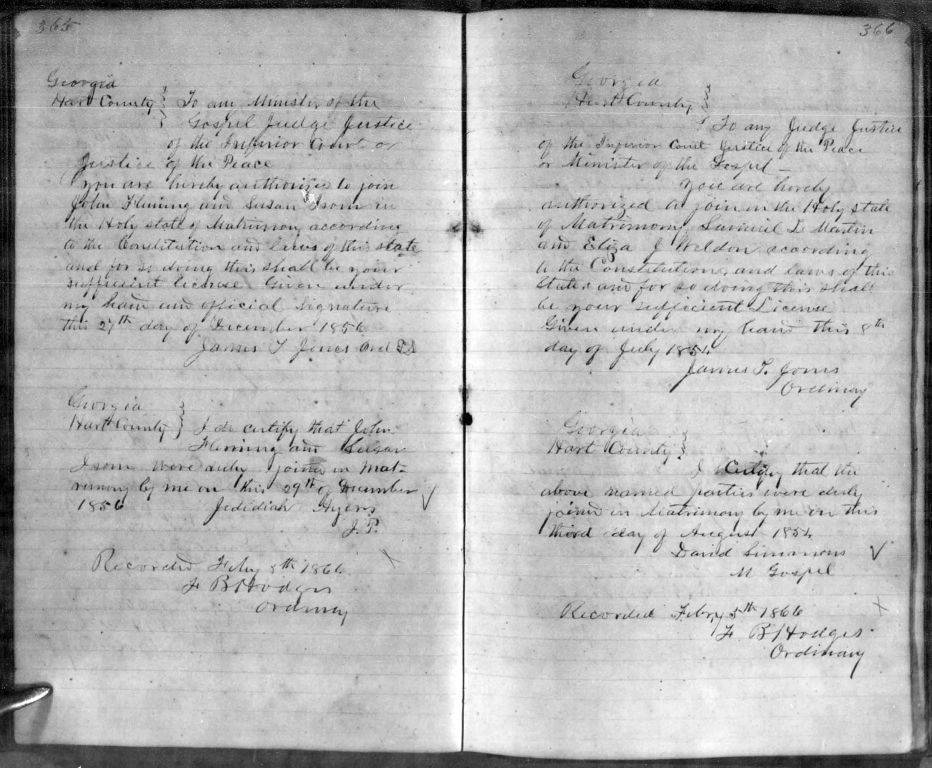 365
Georgia
Hart County } To any Minister of the
Gospel Judge Justice
of the Inferior Court or
Justice of the Peace
You are hereby authorized to join
John Fleming and Susan Isom in
the Holy state of Matrimony according
to the Constitution and laws of this state
and for so doing this shall be your
sufficient license Given under
my hand and official Signature
this 27th day of December 1856
James T Jones Ord
Georgia
Hart County } I do certify that John
Fleming and Susan
Isom were duly joined in Mat-
rimony by me on this 29th of December
1856 Jedidiah Ayers
J. P.
Recorded Feby 5th 1866
F B Hodges
Ordinary
366
Georgia
Hart County }
To any Judge Justice
of the Inferior Court Justice of the Peace
or Minister of the Gospel —
You are hereby
authorized to join in the Holy state
of Matrimony Samuel L Martin
and Eliza J Weldon according
to the Constitution and laws of this
State and for so doing this shall
be your sufficient License
Given under my hand this 8th
day of July 1854
James T. Jones
Ordinary
Georgia
Hart County }
I Certify that the
above named parties were duly
joined in Matrimony by me on this
third day of August 1854
David Simmons
M Gospel
Recorded Feby 5th 1866
F B Hodges
Ordinary